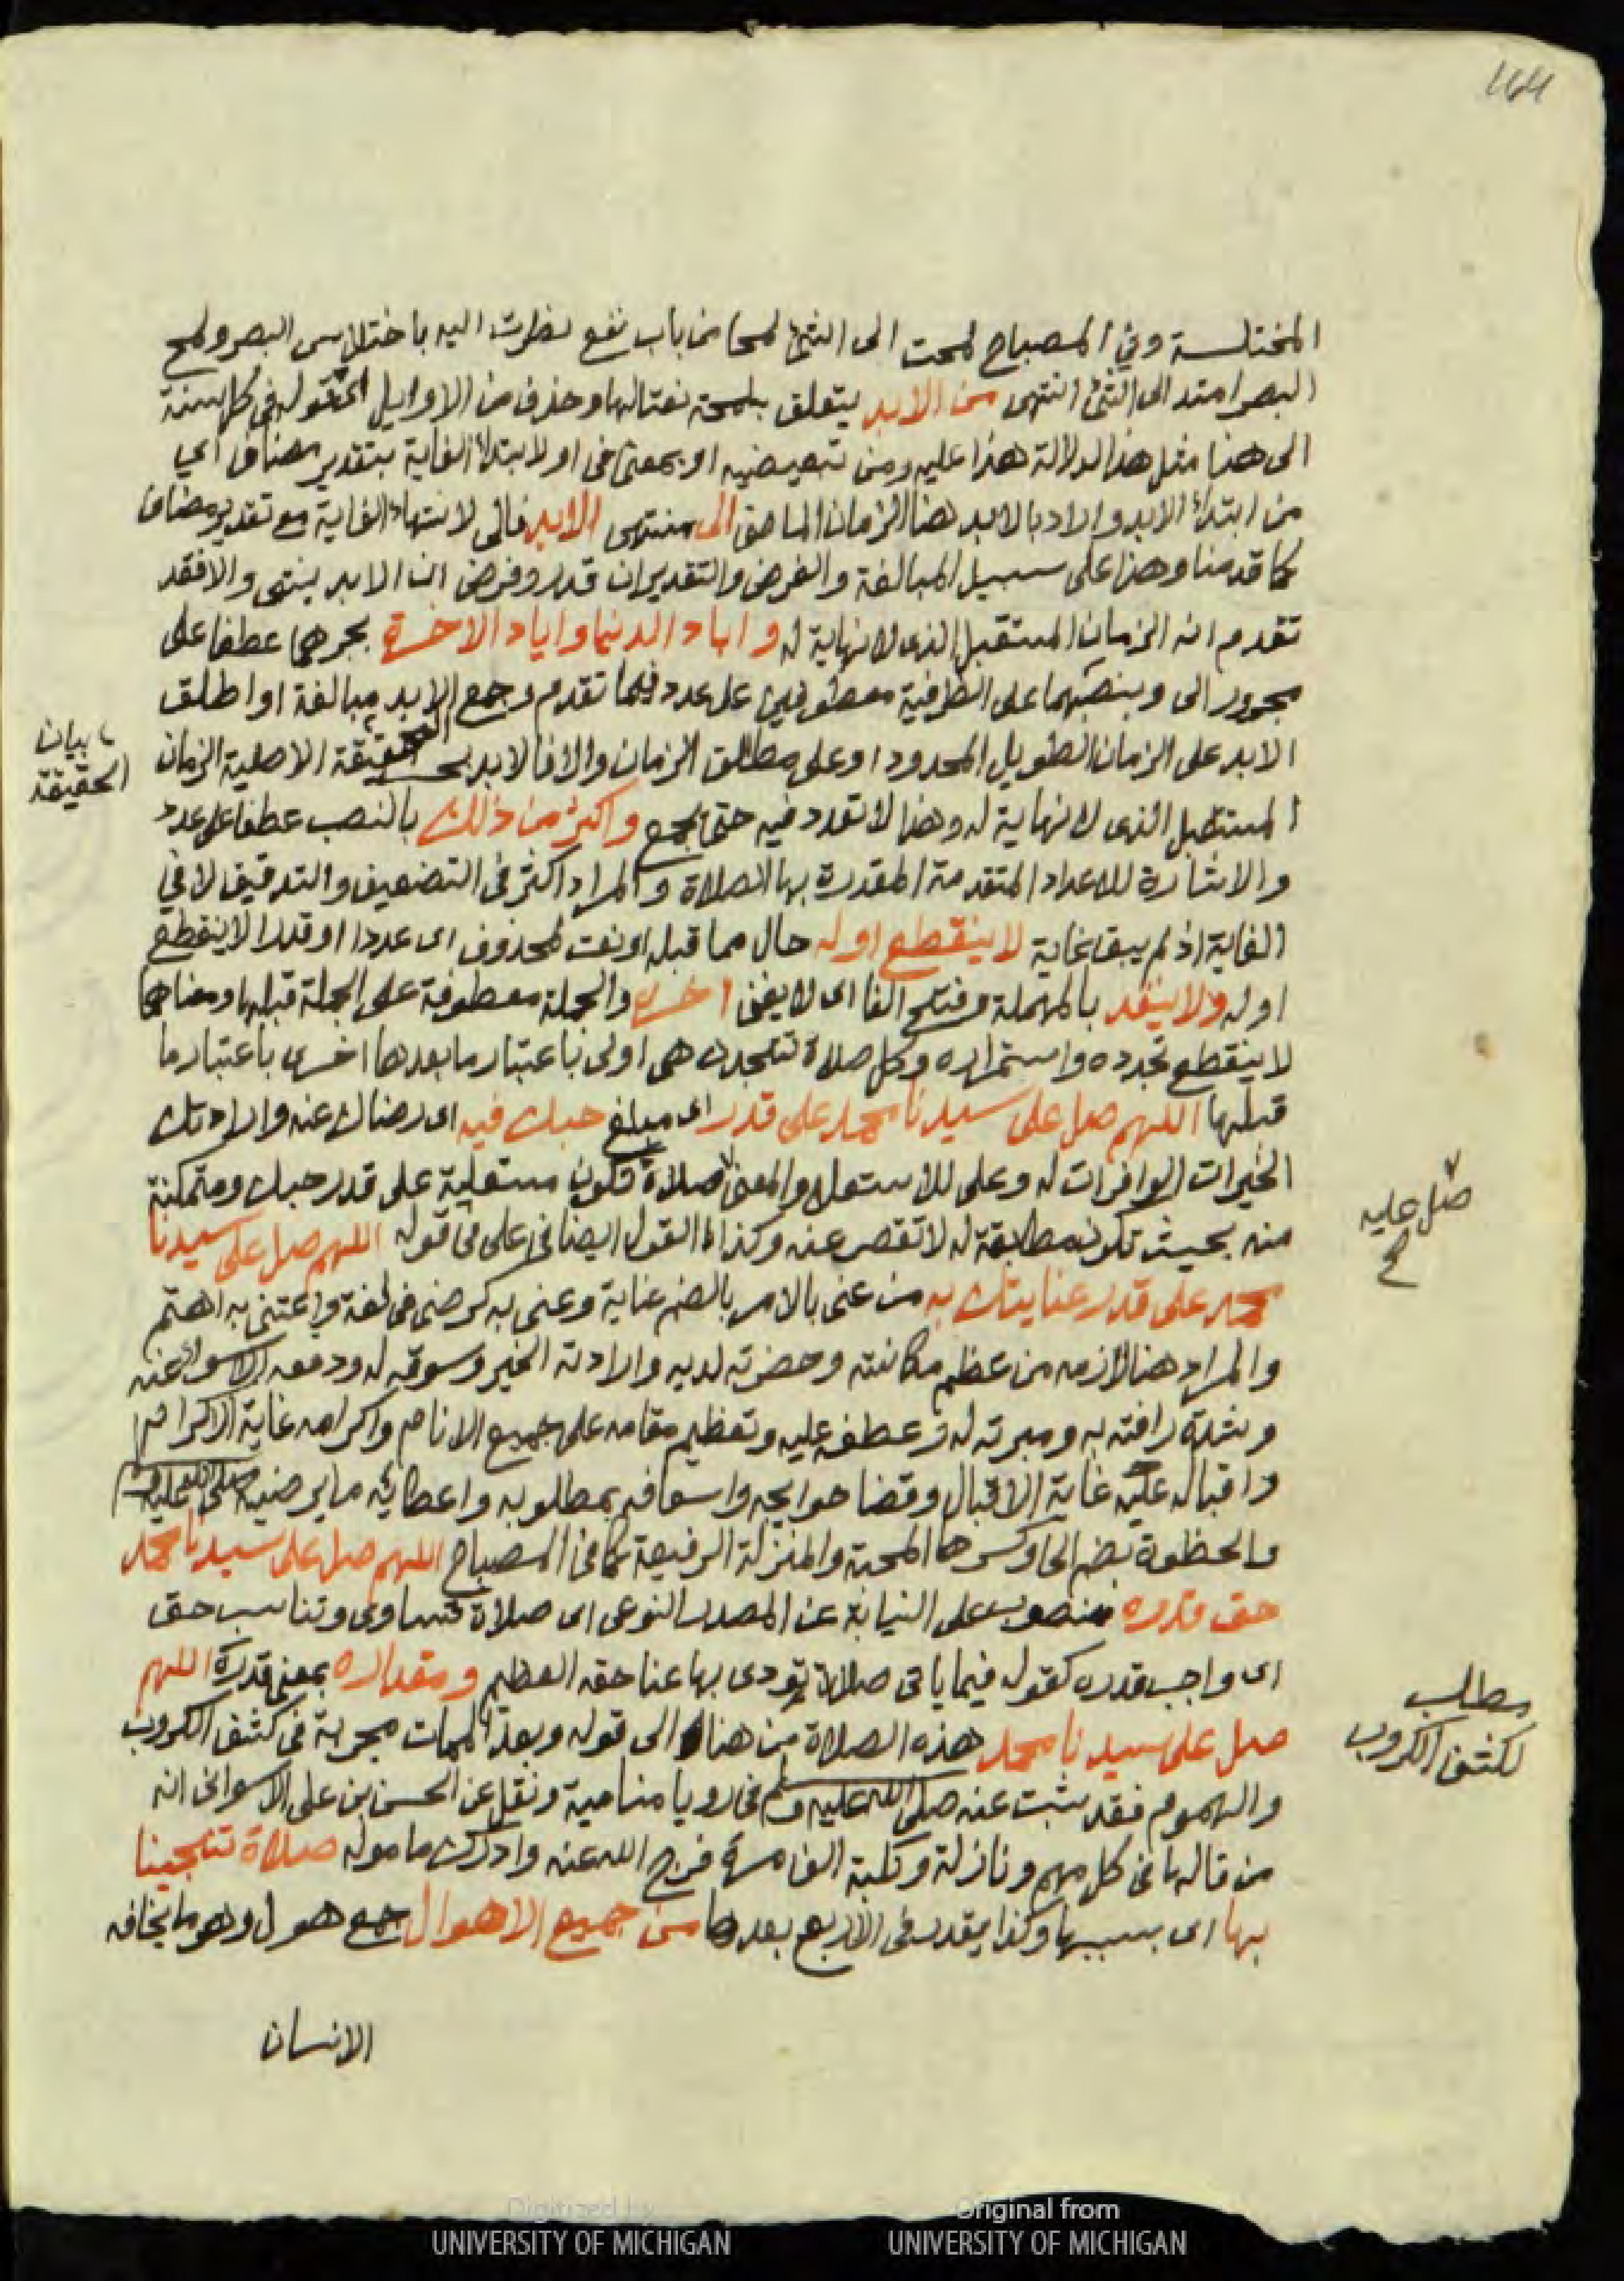 164
المختلسة وفي المصباح لمحت الى الشئ لمحا من باب نفع نظرت اليه باختلاس البصر ولمح
البصر امتد الى الشئ انتهى من الابد يتعلق بلمحة نعتا لها وحذف من الاوايل اعنى قوله فى كل سنة
الى هنا مثل هذا لدلالة هذا عليه ومن تبعيضيه او بمعنى فى او لابتداء الغاية بتقدير مضاف اي
من ابتداء الابد واراد بالابد هنا الزمان الماضى الى منتهى الابد فالى لانتهاء الغاية مع تقدير مضاف
كما قدمنا وهذا على سبيل المبالغة والفرض والتقدير ان قدر وفرض ان الابد ينتهى والا فقد
تقدم انه الزمان المستقبل الذى لا نهاية له واباد الدنيا واباد الاخرة بجرهما عطفا على
مجرور الى وبنصبهما على الظرفية معطوفين على عدد فيما تقدم وجمع الابد مبالغة او اطلق
الابد على الزمان الطويل المحدود او على مطلق الزمان والا فالابد بحسب الحقيقة الاصلية الزمان
بيان
الحقيقة
المستقبل الذى لا نهاية له وهذا لا تعدد فيه حتى يجمع واكثر من ذلك بالنصب عطفا على عدد
والاشارة للاعداد المتقدمة المقدرة بها الصلاة والمراد اكثر فى التضعيف والتدقيق لا في
الغاية اذ لم يبق غاية لا ينقطع اوله حال مما قبله او نعت لمحذوف اى عددا او قدرا لا ينقطع
اوله ولا ينفد بالمهملة وفتح الفا اى لا يفنى اخره والجملة معطوفة على الجملة قبلها ومعناهما
لا ينقطع تجدده واستمراره وكل صلاة تتجدد هى اولى باعتبار ما بعدها اخرى باعتبار ما
قبلها اللهم صل على سيدنا محمد على قدر اى مبلغ حبك فيه اى رضاك عنه وارادتك
الخيرات الوافرات له وعلى للاستعلاء والمعنى صلاة تكون مستعلية على قدر حبك ومتمكنة
صل عليه
منه بحيث تكون مطابقة له لا تقصر عنه وكذا القول ايضا فى على فى قوله اللهم صل على سيدنا
محمد على قدر عنايتك به من عنى بالامر بالضم عناية وعنى به كرضى فى لغة واعتنى به اهتم
والمراد هنا لازمه من عظم مكانته وحضرته لديه وارادته الخير وسوقه له ودفعه الاسواء عنه
وشدة رافته به ومبرته له وعطفه عليه وتعظيم مقامه على جميع الانام واكرامه غاية الاكرام
واقباله عليه غاية الاقبال وقضا حوايجه واسعافه بمطلوبه واعطائه ما يرضيه صلى الله عليه وسلم
والحظوة بضم الحا وكسرها المحبة والمنزلة الرفيعة كما فى المصباح اللهم صل على سيدنا محمد
حق قدره منصوب على النيابة عن المصدر النوعى اى صلاة تساوى وتناسب حق
اى واجب قدره كقوله فيما ياتى صلاة تودى بها عنا حقه العظيم ومقداره بمعنى قدره اللهم
مطلب
لكشف الكروب
صل على سيدنا محمد هذه الصلاة من هنا الى قوله وبعد الممات مجربة فى كشف الكروب
والهموم فقد ثبت عنه صلى الله عليه وسلم فى رويا منامية ونقل عن الحسن بن على الاسوانى انه
من قالها فى كل مهم ونازلة وكلية الف مرة فرج الله عنه وادرك ماموله صلاة تنجينا
بها اى بسببها وكذا يقدر فى الاربع بعدها من جميع الاهوال جمع هول وهو ما يخافه
الانسان
Digitized by
UNIVERSITY OF MICHIGAN
Original from
UNIVERSITY OF MICHIGAN